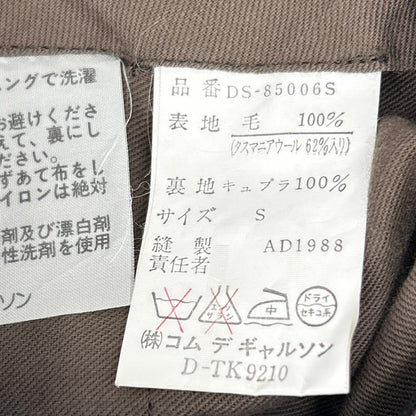 ニングで洗濯
お避けくださ
えて、裏にし
ずあて布をし
イロンは絶対
剤及び漂白剤
性洗剤を使用
ルソン
品番 DS-85006S
表地 毛 100%
(タスマニアウール 62%入り)
裏地 キュプラ100%
サイズ S
縫製 AD1988
責任者
エンソ サラシ 中 ドライ セキユ系
(株)コム デ ギャルソン
D-TK9210